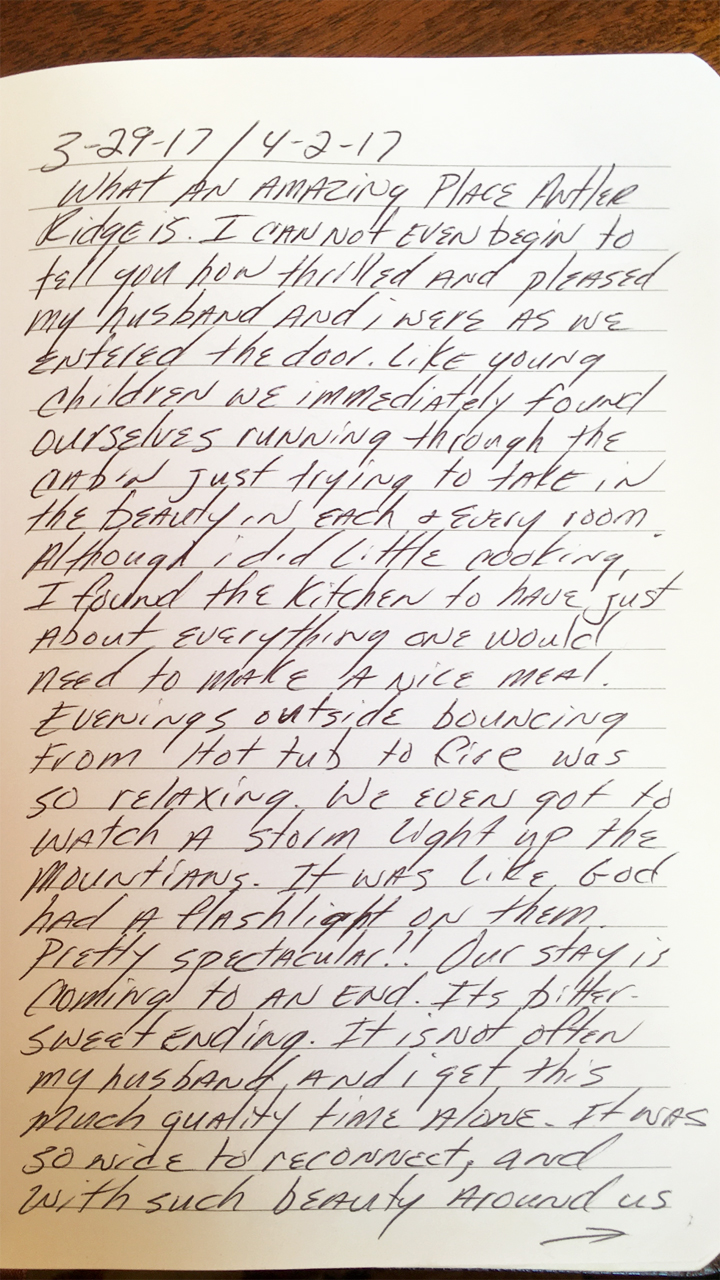 3-29-17 / 4-2-17
What an amazing place Antler
Ridge is. I can not even begin to
tell you how thrilled and pleased
my husband and i were as we
entered the door. Like young
children we immediately found
ourselves running through the
cabin just trying to take in
the beauty in each & every room.
Although i did little cooking,
I found the kitchen to have just
about everything one would
need to make a nice meal.
Evenings outside bouncing
from Hot tub to fire was
so relaxing. We even got to
watch a storm light up the
Mountians. It was like God
had a flashlight on them.
Pretty spectacular!! Our stay is
coming to an end. Its bitter-
sweet ending. It is not often
my husband and i get this
much quality time alone. It was
so nice to reconnect, and
with such beauty around us
→